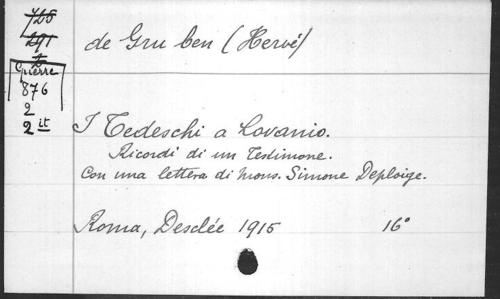 728
291
t
Guerre
876
2
2 it
de Gruben (Hervé)
I Tedeschi a Lovanio.
Ricordi di un Testimone.
Con una lettera di Mons. Simone Deploige.
Roma, Desclée 1915 16°